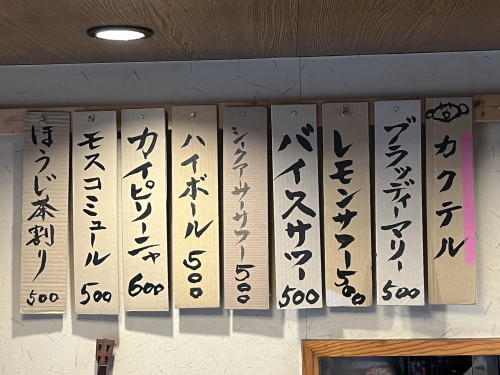 カクテル
ブラッディーマリー 500
レモンサワー 500
バイスサワー 500
シークアサーサワー 500
ハイボール 500
カイピリーニャ 600
モスコミュール 500
ほうじ茶割り 500